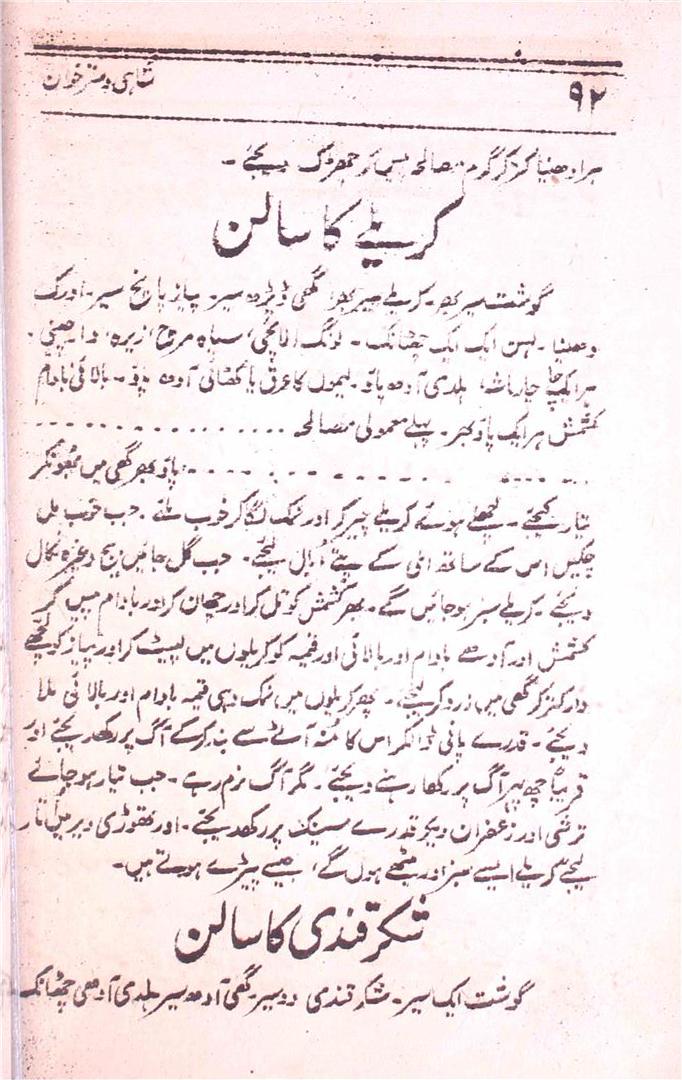 شاہی دسترخوان
۹۲
ہرا دھنیا کتر کر گرم مصالحہ پیس کر چھڑک دیجئے۔
کریلے کا سالن
گوشت سیر بھر۔ کریلے سیر بھر، گھی ڈیڑھ سیر۔ پیاز پانچ سیر۔ ادرک
دھنیا۔ لہسن ایک ایک چھٹانک۔ لونگ، الائچی، سیاہ مرچ، زیرہ، دارچینی۔
ہر ایک چار ماشہ، ہلدی آدھ پاؤ۔ لیموں کا عرق یا کھٹائی آدھ پاؤ۔ بالائی بادام
کشمش ہر ایک پاؤ بھر۔ پہلے معمولی مصالحہ ................
................ پاؤ بھر گھی میں بھونکر
تیار کیجئے۔ چھلے ہوئے کریلے چیر کر اور نمک لگا کر خوب ملئے۔ جب خوب مل
چکیں اس کے ساتھ املی کے پتے اُبال لیجئے۔ جب گل جائیں بیج وغیرہ نکال
دیجئے۔ کریلے سبز ہو جائیں گے۔ پھر کشمش کو تل کر اور چھان کر اور بادام میں
کشمش اور آدھے بادام اور بالائی اور قیمہ کو کریلوں میں لپیٹ کر اور پیاز کو لچھے
دار کتر کر گھی میں زرد کر لیجئے۔ پھر کریلوں میں نمک دہی قیمہ بادام اور بالائی ملا
دیجئے۔ قدرے پانی ڈالکر اس کا منہ آٹے سے بند کر کے آگ پر رکھ دیجئے اور
قریباً چھ پہر آگ پر رکھا رہنے دیجئے۔ مگر آگ نرم رہے۔ جب تیار ہو جائے
ترشی اور زعفران دیکر قدرے سینک پر رکھ دیجئے۔ اور تھوڑی دیر میں اُتار
لیجئے کریلے ایسے سبز اور میٹھے ہوں گے، جیسے پیڑے ہوتے ہیں۔
شکر قندی کا سالن
گوشت ایک سیر۔ شکر قندی دو سیر۔ گھی آدھ سیر ہلدی آدھی چھٹانک